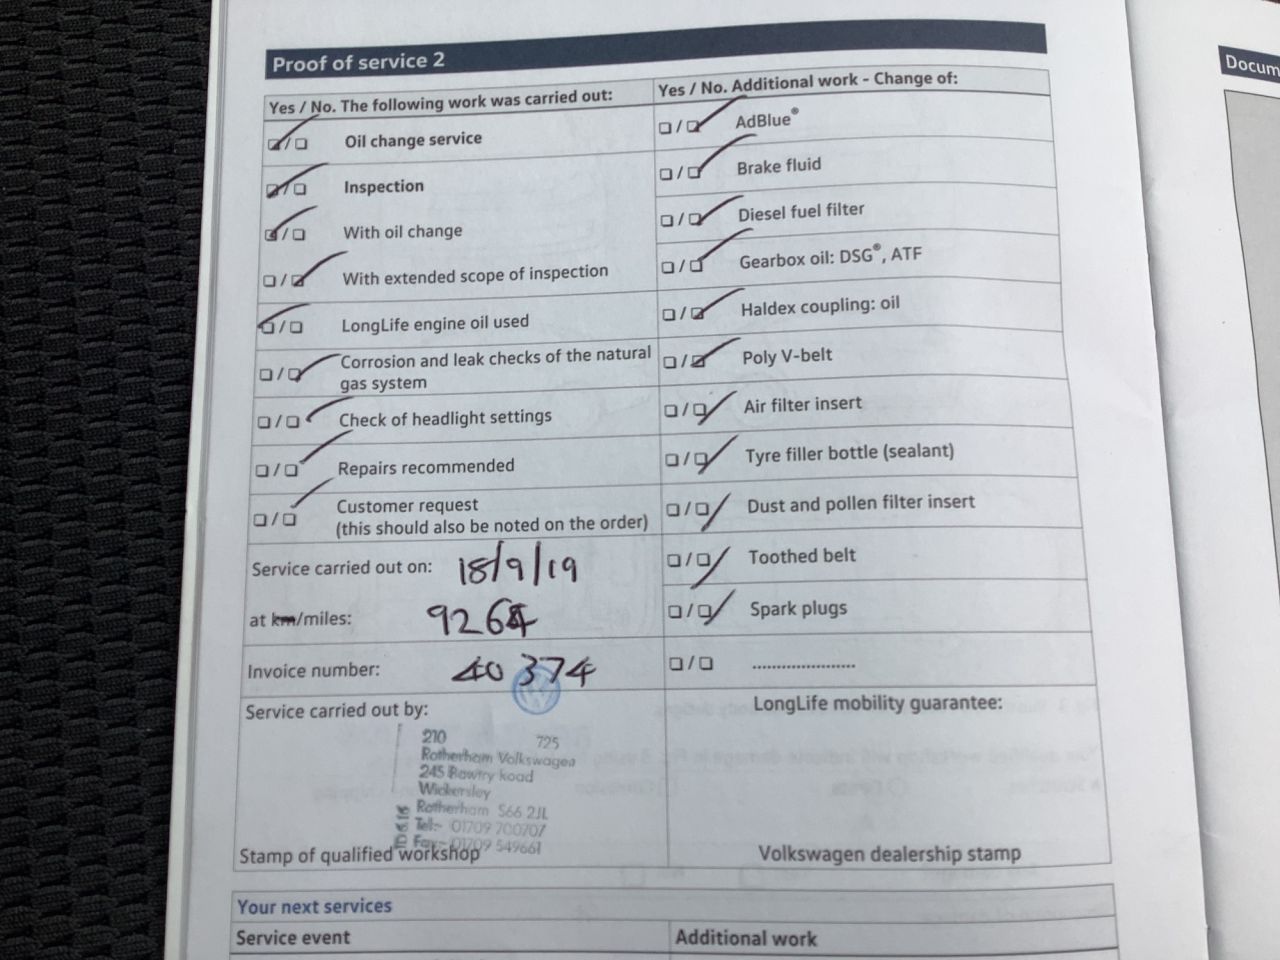 Proof of service 2
Docum
Yes / No. The following work was carried out:
Oil change service
Inspection
With oil change
With extended scope of inspection
LongLife engine oil used
Corrosion and leak checks of the natural
gas system
Check of headlight settings
Repairs recommended
Customer request
(this should also be noted on the order)
Service carried out on: 18/9/19
at km/miles: 9264
Invoice number: 40 374
Service carried out by:
210 725
Rotherham Volkswagen
245 Bawtry Road
Wickersley
Rotherham S66 2JL
Tel:- 01709 700707
Fax:- 01709 549661
Stamp of qualified workshop
Yes / No. Additional work - Change of:
AdBlue®
Brake fluid
Diesel fuel filter
Gearbox oil: DSG®, ATF
Haldex coupling: oil
Poly V-belt
Air filter insert
Tyre filler bottle (sealant)
Dust and pollen filter insert
Toothed belt
Spark plugs
.....................
LongLife mobility guarantee:
Volkswagen dealership stamp
Your next services
Service event
Additional work